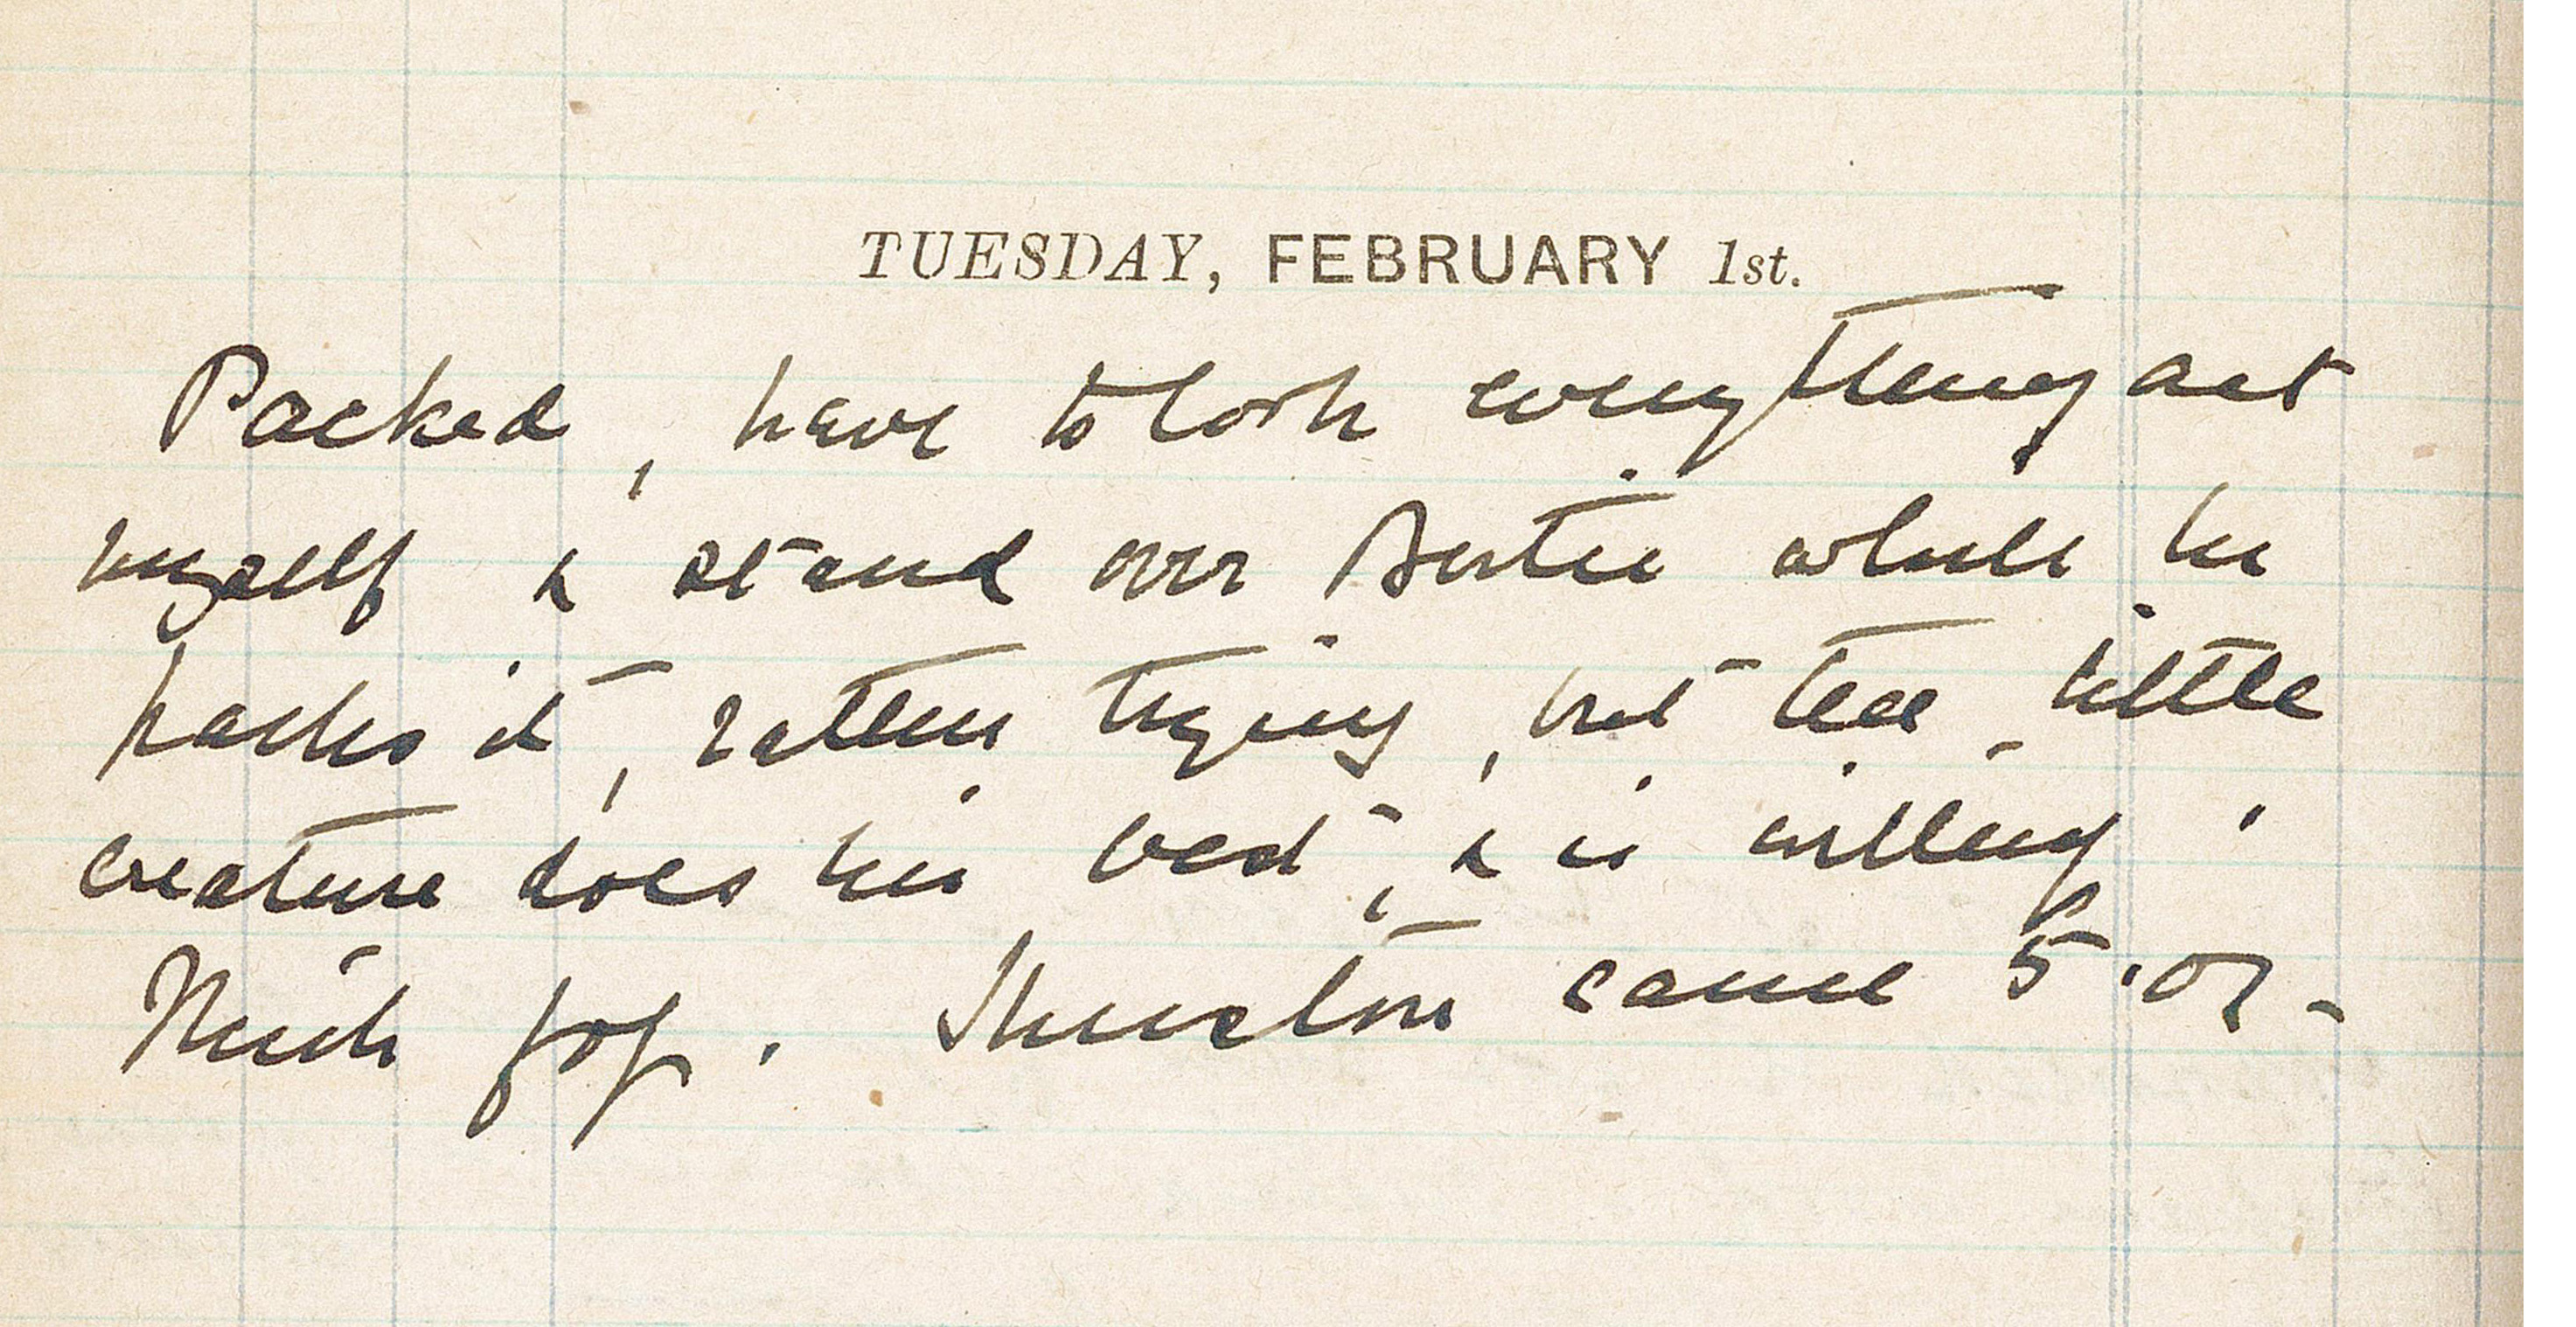 TUESDAY, FEBRUARY 1st.
Packed, have to look everything out
myself & stand over Bertie while he
packs it, rather trying, but the little
creature does his best, & is willing.
Much fog. came 5.